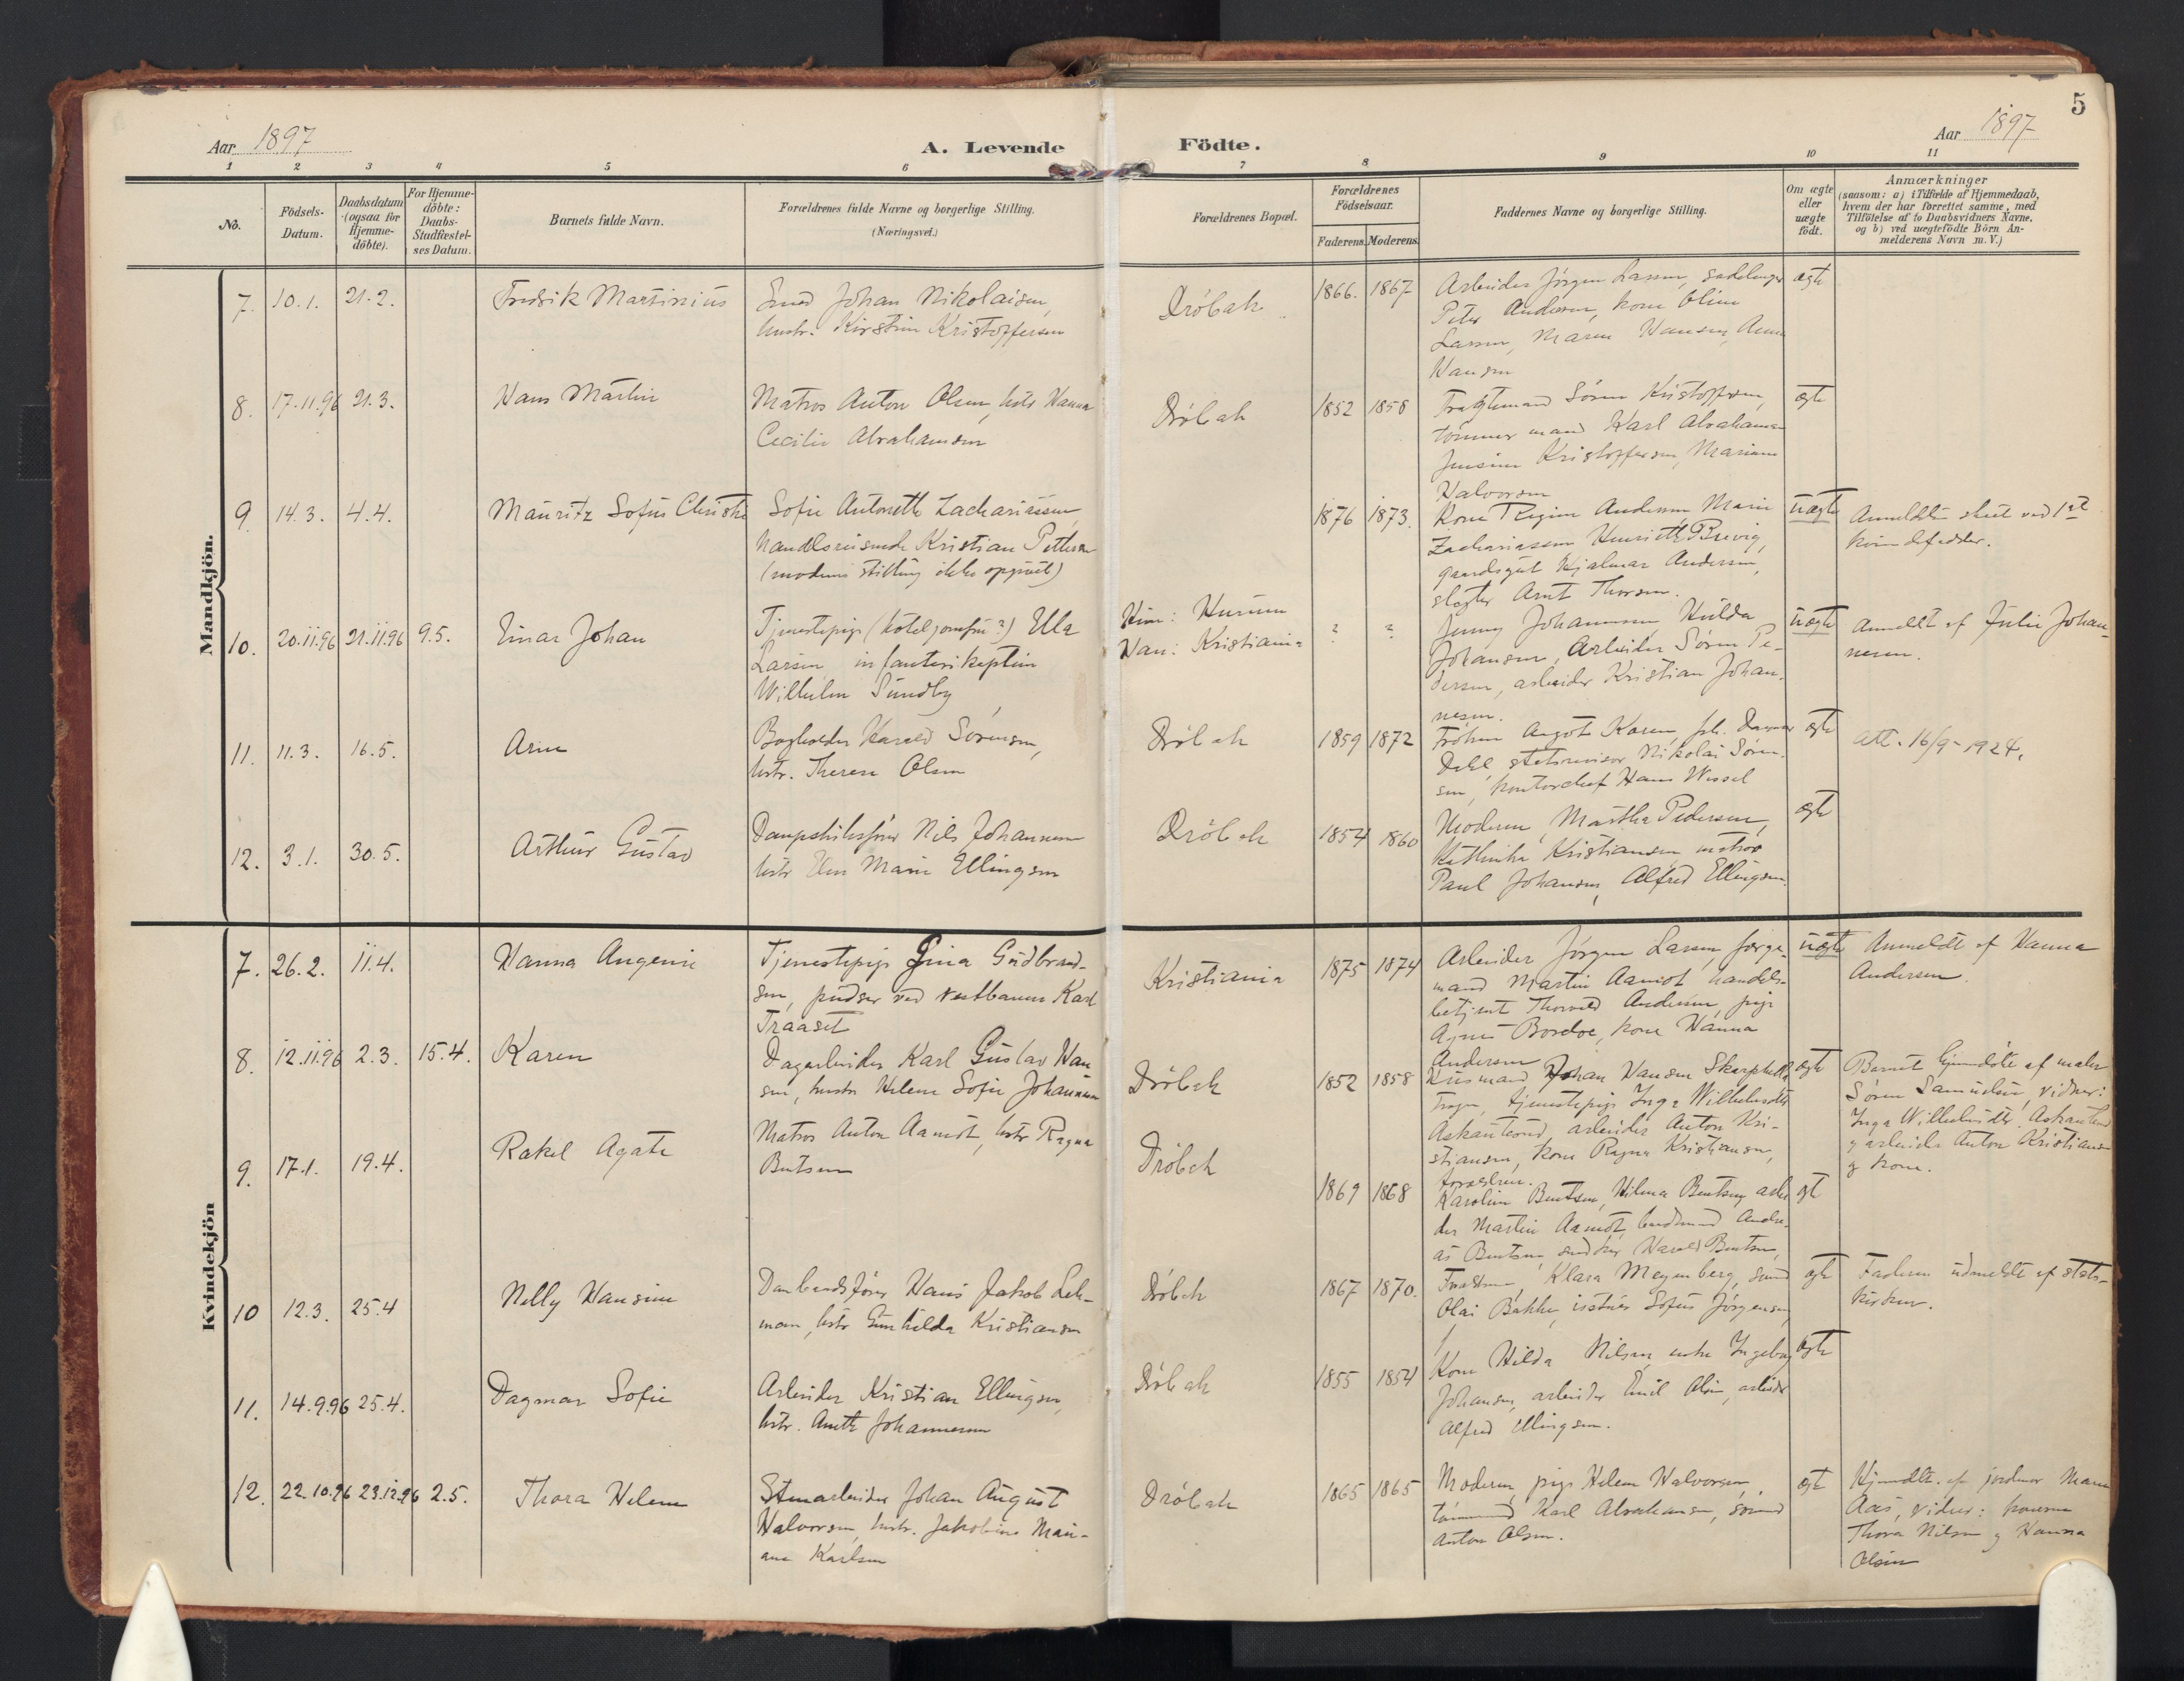 5
Aar 1897
A. Levende
Födte.
Aar 1897
1 2 3 4 5 6 7 8 9 10 11
No.
Födsels-
Datum.
Daabsdatum
(ogsaa for
Hjemme-
döbte).
For Hjemme-
döbte:
Daabs-
Stadfæstel-
ses Datum.
Barnets fulde Navn.
Forældrenes fulde Navne og borgerlige Stilling.
(Næringsvei.)
Forældrenes Bopæl.
Forældrenes
Födselsaar.
Faderens. Moderens.
Faddernes Navne og borgerlige Stilling.
Om ægte
eller
uægte
födt.
Anmærkninger
(saasom: a) i Tilfælde af Hjemmedaab,
hvem der har forrettet samme, med
Tilföielse af to Daabsvidners Navne.
og b) ved uægtefödte Börn An-
melderens Navn m. V.)
Mandkjön.
7. 10.1. 21.2.
Fredrik Martinius
Smed Johan Nikolaisen,
hustr. Kirstine Kristoffersen
Dröbak
1866. 1867
Arbeider Jörgen Larsen,
Peter Andersen, kone Oline
Larsen, Maren Hansen, Anna
Hansen
ægte
8. 17.11.96 21.3.
Hans Martin
Matros Anton Olsen, hstr Hanna
Cecilie Abrahamsen
Dröbak
1852 1858
Sören Kristoffersen,
tömmermand Karl Abrahamsen
Jensine Kristoffersen, Mariane
Halvorsen
ægte
9. 14.3. 4.4.
Mauritz Sofus Christi
Sofie Antonette Zachariassen,
handelsreisende Kristian Pettersen
(moderens stilling ikke opgivet)
1876 1873.
Kone Regine Andersen Marie
Zachariassen Henriette Brevig,
gaardsgut Hjalmar Andersen,
slagter Arnt Thorsen.
uægte
Anmeldelse skeet ved 1ste
kvindefadder.
10. 20.11.96 21.11.96 9.5.
Einar Johan
Tjenestepige (hoteljomfru?) Ella
Larsen, infanterikaptein
Wilhelm Sundby
Hun: Hurum
Han: Kristiania
? ?
Jenny Johannesen, Hulda
Johansen, Arbeider Sören Pe-
dersen, arbeider Kristian Johan-
nesen.
uægte
Anmeldt af Julie Johan-
nesen.
11. 11.3. 16.5.
Arne
Bogholder Harald Sörensen,
hstr. Therese Olsen
Dröbak
1859 1872
Fröken Augot Karen, frk. Dagmar
Dahl, statsrevisor Nikolai Sören-
sen, kontorchef Hans Wessel
ægte
Att. 16/9-1924.
12. 3.1. 30.5.
Arthur Gustav
Dampskibsförer Nils Johannesen
hstr Elen Marie Ellingsen
Dröbak
1854 1860
Moderen, Martha Pedersen,
Kathinka Kristiansen, matros
Paul Johansen, Alfred Ellingsen.
ægte
Kvindekjön
7. 26.2. 11.4.
Hanna Augenie
Tjenestepige Gina Gudbrand-
sen, pudser ved vestbanen Karl
Traaset
Kristiania
1875 1874
Arbeider Jörgen Larsen,
mand Martin Aamodt, handels-
betjent Thorvald Andersen, pige
Agnes Bordoe, kone Hanna
Andersen
uægte
Anmeldt af Hanna
Andersen.
8. 12.11.96 2.3. 15.4.
Karen
Dagarbeider Karl Gustav Han
sen, hustr Helene Sofie Johannesen
Dröbak
1852 1858
Husmand Johan Hansen
tjenestepige Inga Wilhelmsdtr
Askautrud, arbeider Anton Kri-
stiansen, kone Ragna Kristiansen,
forældrene.
ægte
Barnet hjemdöbt af maler
Sören Samuelsen, vidner:
Inga Wilhelmsdtr. Askautrud
og arbeider Anton Kristiansen
og kone.
9. 17.1. 19.4.
Rakel Agate
Matros Anton Aamodt, hstr Ragna
Bentsen
Dröbak
1869 1868
Karoline Bentsen, Hilma Bentsen, arbei
der Martin Aamodt, Andre-
as Bentsen, Harald Bentsen,
ægte
10 12.3. 25.4
Nelly Hansine
Hans Jakob Leh-
man, hstr Gunhilda Kristiansen
Dröbak
1867 1870.
Forældrene, Klara Meyenberg,
Olai Bakke, Sofus Jörgensen,
ægte
Faderen udmeldt af stats-
kirken.
11. 14.9.96 25.4.
Dagmar Sofie
Arbeider Kristian Ellingsen,
hstr. Anette Johannesen
Dröbak
1855 1854
Kone Hilda Nilsen, enke Ingeborg
Johansen, arbeider Emil Olsen, arbeider
Alfred Ellingsen.
ægte
12. 22.10.96 23.12.96 2.5.
Thora Helene
Stenarbeider Johan August
Halvorsen, hustr. Jakobine Mari-
ane Karlsen
Dröbak
1865 1865
Moderen, pige Helene Halvorsen,
tömmermd Karl Abrahamsen, sömd
Anton Olsen.
ægte
Hjemdöbt af jordmor Maren
Aas, vidner: konerne
Thora Nilsen og Hanna
Olsen